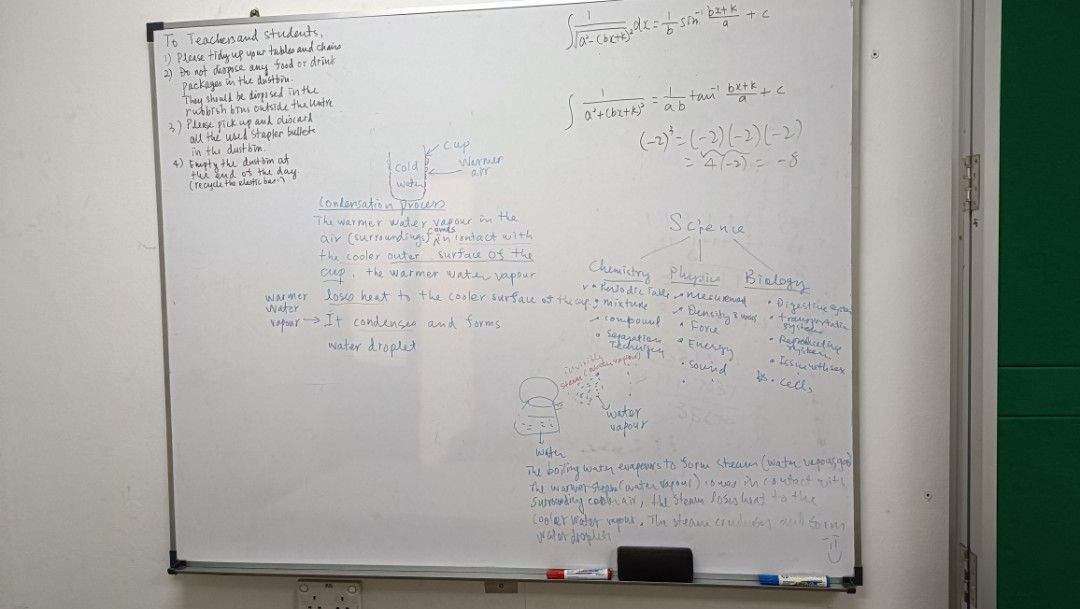 To Teachers and students,
1) Please tidy up your tables and chairs
2) Do not dispose any food or drink
packages in the dustbin.
They should be disposed in the
rubbish bins outside the centre
3) Please pick up and discard
all the used stapler bullets
in the dustbin.
4) Empty the dustbin at
the end of the day
(recycle the plastic bag)
∫ 1/√(a²-(bx+k)²) dx = 1/b sin⁻¹ (bx+k)/a + c
∫ 1/(a²+(bx+k)²) = 1/ab tan⁻¹ (bx+k)/a + c
(-2)³ = (-2)(-2)(-2)
= 4(-2) = -8
cup
cold
water
warmer
air
Condensation process
The warmer water vapour in the
air (surroundings) comes in contact with
the cooler outer surface of the
cup, the warmer water vapour
loses heat to the cooler surface of the cup.
warmer
water
vapour → It condenses and forms
water droplet
Science
Chemistry
Periodic Table
mixture
compound
Separation
Physics
Density
Force
Energy
Sound
Biology
Digestive system
transportation
system
Reproductive
system
cells
invisible
steam (water vapour)
water
vapour
water
The boiling water evaporates to form steam (water vapour, gas)
The warmer steam (water vapour) comes in contact with
surrounding cooler air, the steam loses heat to the
cooler water vapour. The steam condenses and form
water droplets